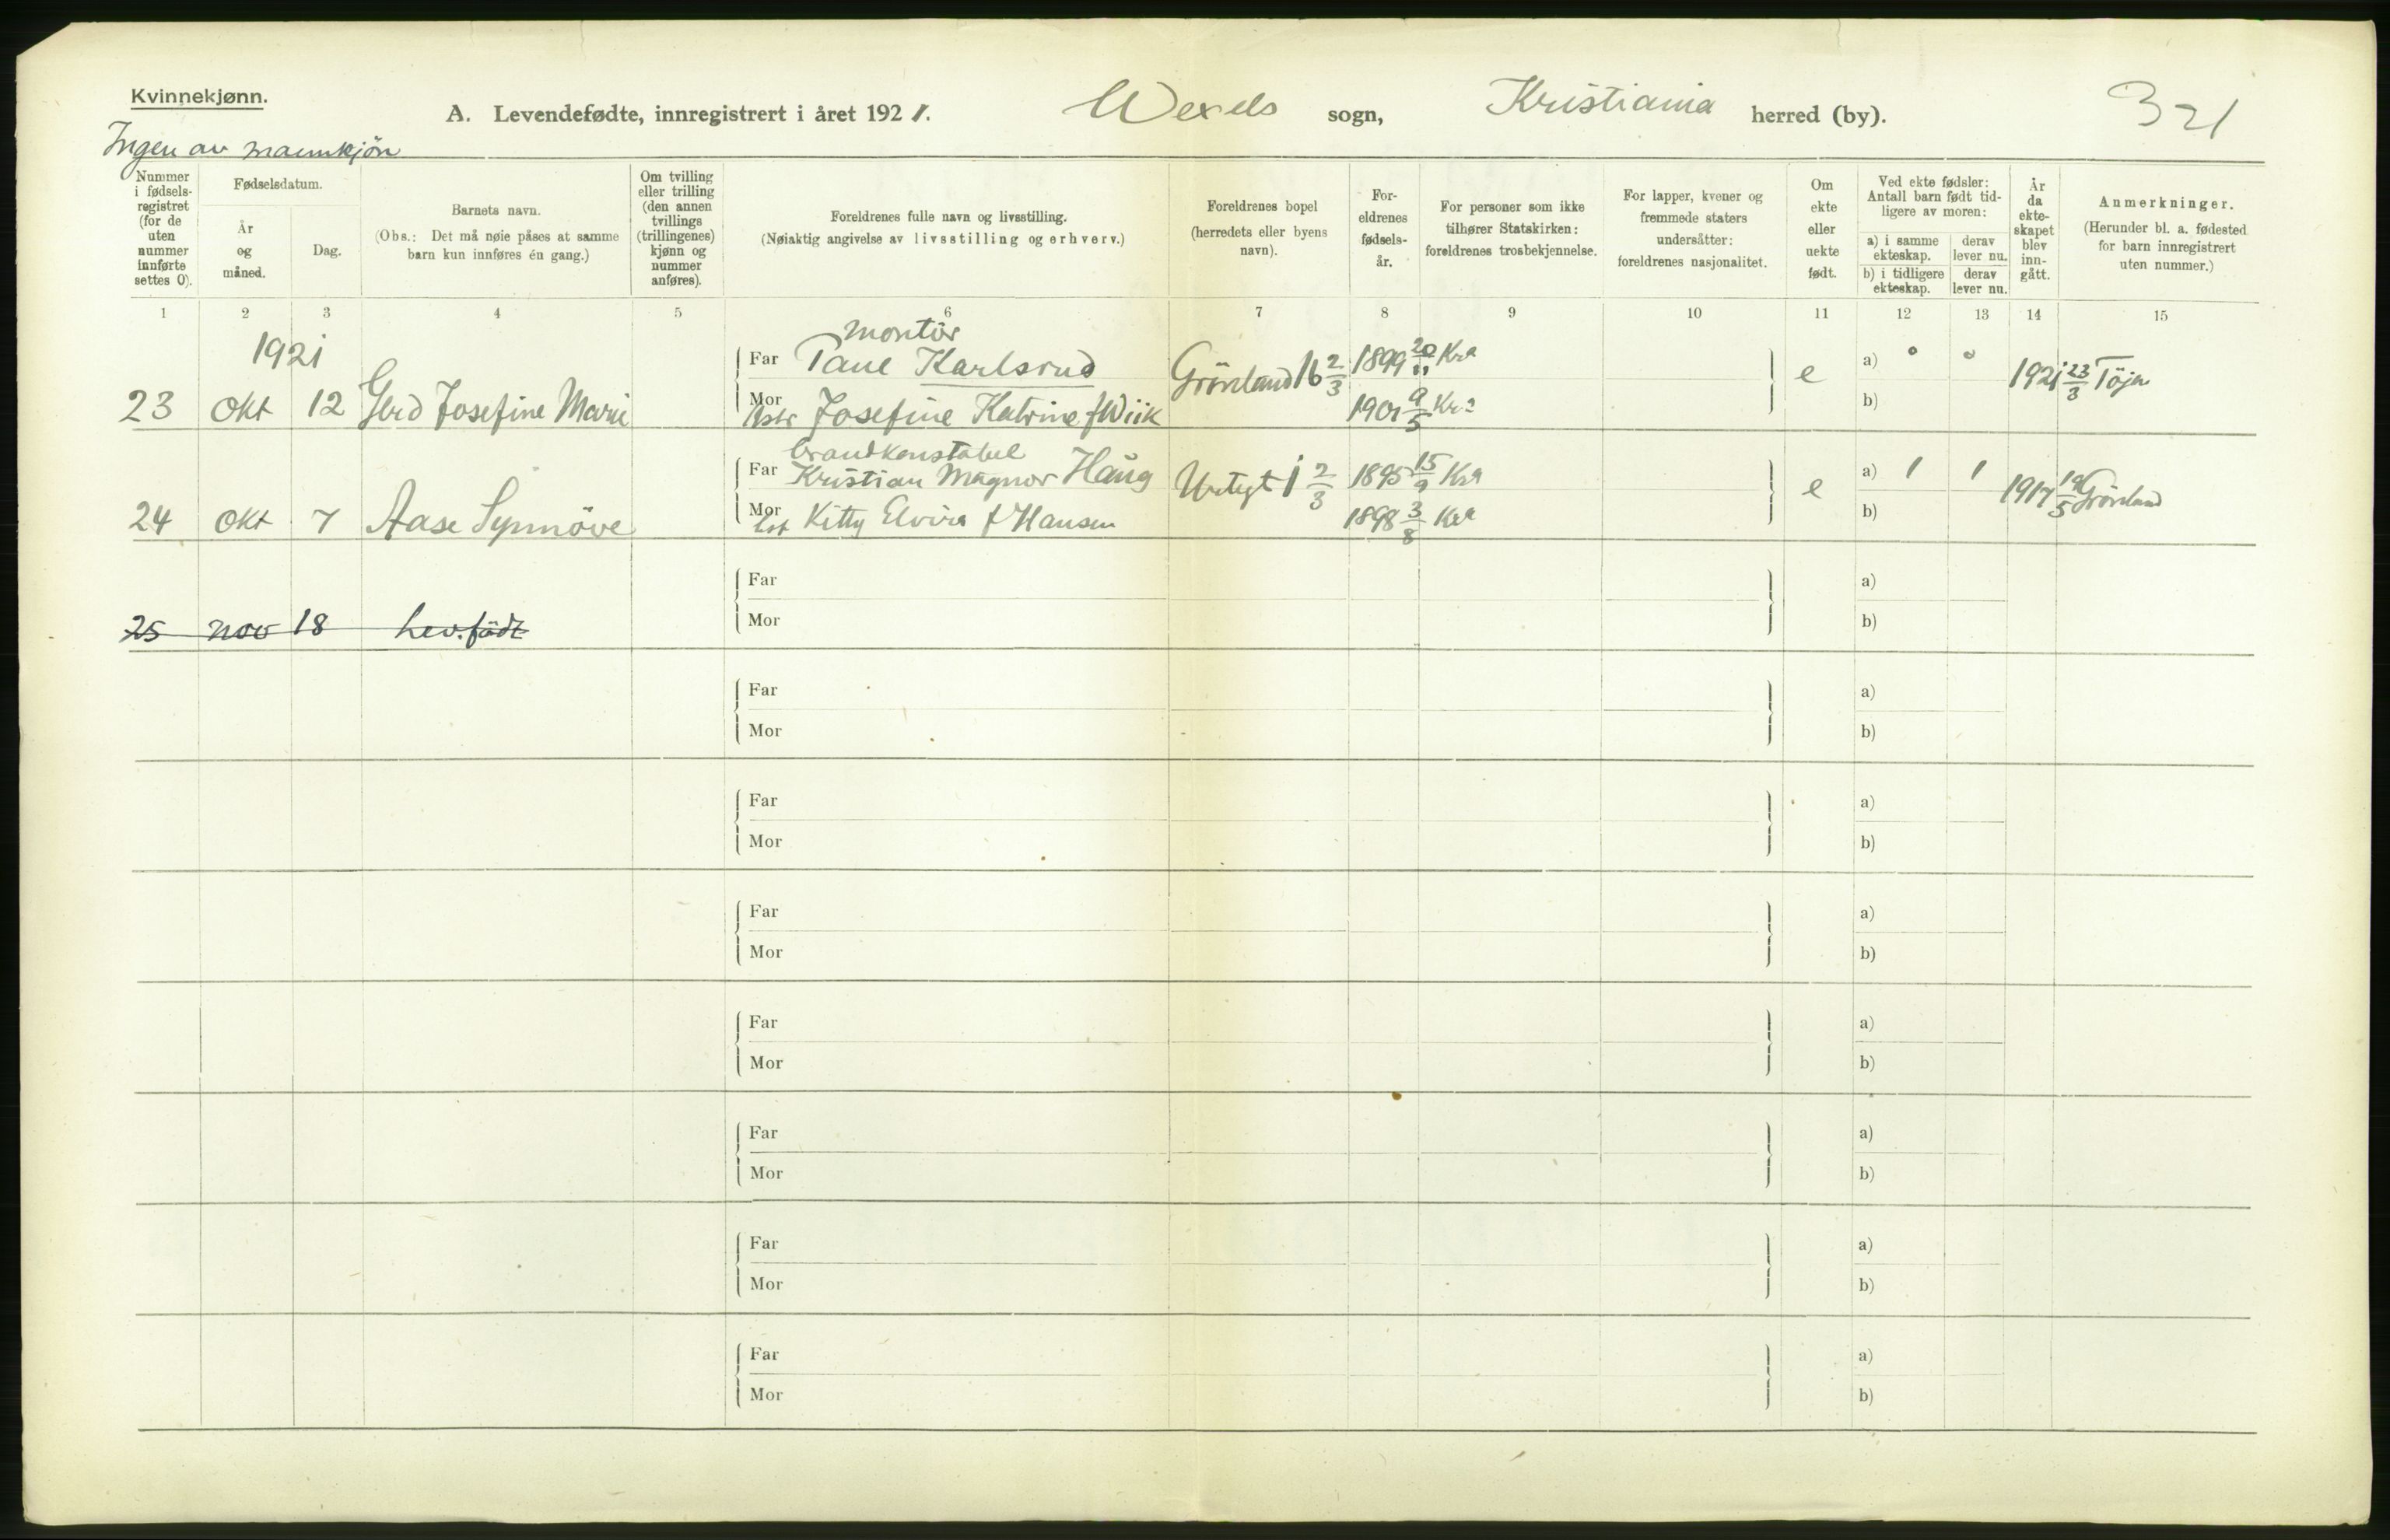 Kvinnekjønn.
A. Levendefødte, innregistrert i året 1921. Wexels sogn, Kristiania herred (by). 321
Ingen av mannkjön
Nummer i fødsels-registret (for de uten nummer innførte settes 0).
Fødselsdatum.
År og måned.
Dag.
Barnets navn.
(Obs.: Det må nøie påses at samme barn kun innføres én gang.)
Om tvilling eller trilling (den annen tvillings (trillingenes) kjønn og nummer anføres).
Foreldrenes fulle navn og livsstilling.
(Nøiaktig angivelse av livsstilling og erhverv.)
Foreldrenes bopel (herredets eller byens navn).
For-eldrenes fødsels-år.
For personer som ikke tilhører Statskirken: foreldrenes trosbekjennelse.
For lapper, kvener og fremmede staters undersåtter: foreldrenes nasjonalitet.
Om ekte eller uekte født.
Ved ekte fødsler: Antall barn født tid-ligere av moren:
a) i samme ekteskap. derav lever nu.
b) i tidligere ekteskap. derav lever nu.
År da ekte-skapet blev inn-gått.
Anmerkninger.
(Herunder bl. a. fødested for barn innregistrert uten nummer.)
1 2 3 4 5 6 7 8 9 10 11 12 13 14 15
1921
montör
Far Karlsrud Grönland 16 2/3 1899 20/11 Kra e a) 0 0 1921 23/3 Töjen
23 Okt 12 Gerd Josefine Marie Mor Josefine Katrine f Wiik 1901 9/5 Kra b)
brandkonstabel
Far Kristian Magnor Haug Urtegt 1 2/3 1895 15/9 Kra e a) 1 1 1917 19/5 Grönland
24 Okt 7 Aase Synnöve Mor Kitty Elvira f Hansen 1898 3/8 Kra b)
Far a)
25 nov 18 lev.födt Mor b)
Far a)
Mor b)
Far a)
Mor b)
Far a)
Mor b)
Far a)
Mor b)
Far a)
Mor b)
Far a)
Mor b)
Far a)
Mor b)